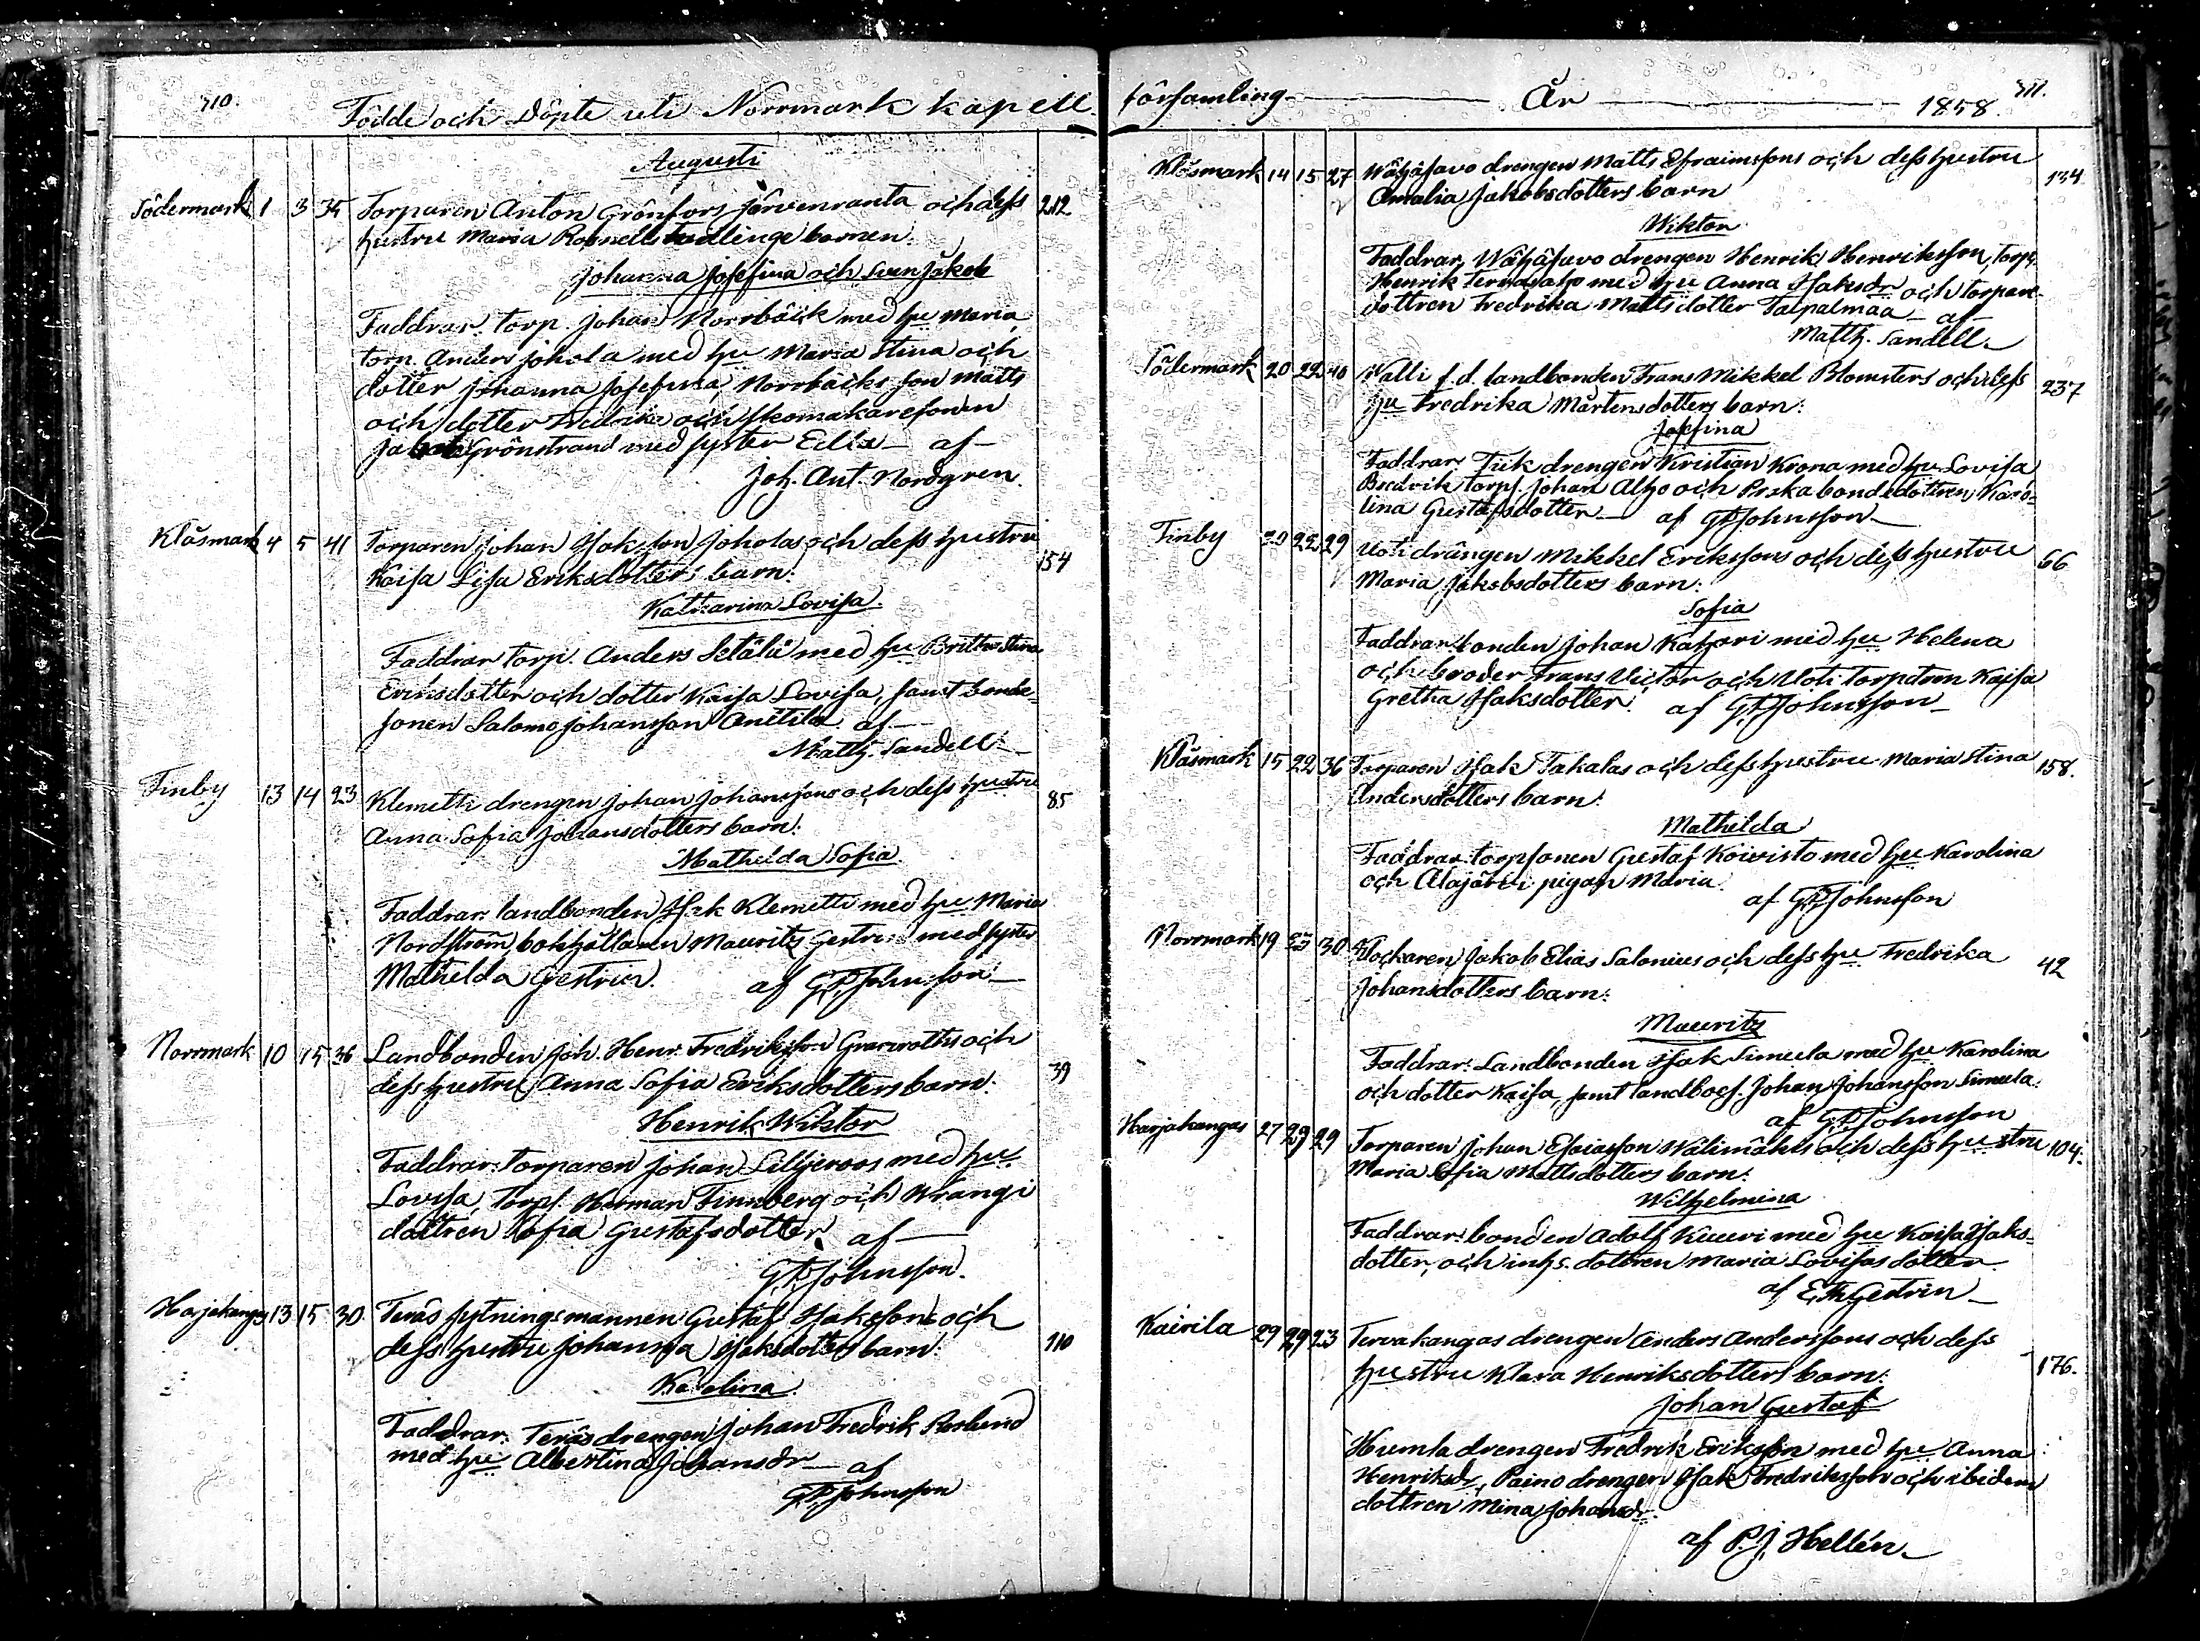 710.
Födde och Döpte uti Norrmark kapell
Augusti
Södermark 1 3 35 Torparen Anton Grönfors Järvenranta och dess 212
hustru Maria Rosnells tvillinge barnen:
Johanna Josefina och Sven Jakob
Faddrar: torp. Johan Norrbäck med hu Maria,
torp. Anders Johola med hu Maria Stina och
dotter Johanna Josefina, Norrbäcks son Matts
och dotter Fredrika och skomakaresonen
Jakob Grönstrand med syster Edla — af —
Joh. Ant. Nordgren.
Klåsmark 4 5 41 Torparen Johan Isaksson Joholas och dess hustru 154
Kaisa Lisa Eriksdotters barn:
Katharina Lovisa.
Faddrar torp. Anders Setälä med hu Britta Stina
Eriksdotter och dotter Kaisa Lovisa, samt bonde-
sonen Salomo Johansson Anttila af —
Matth. Sandell. —
Finby 13 14 23 Klemetti drengen Johan Johanssons och dess hustru 85
Anna Sofia Johansdotters barn:
Mathilda Sofia.
Faddrar: landbonden Isak Klemetti med hu Maria
Nordström, bokhållaren Mauritz Gestrin med syster
Mathilda Gestrin. af G. P. Johnsson —
Norrmark 10 15 36 Landbonden Joh. Henr. Fredriksson och 39
dess hustru Anna Sofia Eriksdotters barn:
Henrik Wiktor
Faddrar: torparen Johan Liljeroos med hu
Lovisa, torps. Herman Finnberg och Wrangi
dottren Sofia Gustafsdotter. af —
G. P. Johnsson.
Harjakangas 13 15 30 Teräs sytningsmannen Gustaf Isakssons och 110
dess hustru Johanna Isaksdotters barn:
Karolina.
Faddrar: Teräs drengen Johan Fredrik Roslund
med hu Albertina Johansdr — af
G. P. Johnsson
församling — År — 1858. 711.
Klåsmark 14 15 27 Wähäsavo drengen Matts Efraimssons och dess hustru 134
Amalia Jakobsdotters barn
Wiktor
Faddrar, Wähäsavo drengen Henrik Henriksson, torp.
Henrik med hu Anna Isaksdr och torpare-
dottren Fredrika Mattsdotter Talpalmaa — af —
Matth. Sandell. —
Södermark 20 22 40 Walli f. d. landbonden Frans Mikkel Blomsters och dess 237
hu Fredrika Mårtensdotters barn:
Josfina
Faddrar, drengen Kristian Krona med hu Lovisa
torps. Johan Alho och bondedottren Karo-
lina Gustafsdotter — af G. P. Johnsson —
Finby 20 22 29 Uoti drängen Mikkel Erikssons och dess hustru 66
Maria Jakobsdotters barn:
Sofia
Faddrar bonden Johan Kahari med hu Helena
och broder Frans Victor och Uoti torpdtren Kaisa
Gretha Isaksdotter. af G. P. Johnsson —
Klåsmark 15 22 36 Torparen Isak Takalas och dess hustru Maria Stina 158.
Andersdotters barn:
Mathilda
Faddrar: torpsonen Gustaf Koivisto med hu Karolina
och Alajärvi pigan Maria.
af G. P. Johnsson
Norrmark 19 25 30 Klockaren Jakob Elias Salonius och dess hu Fredrika 42
Johansdotters barn:
Mauritz
Faddrar: Landbonden Isak Simula med hu Karolina
och dotter Kaisa, samt landbos. Johan Johansson Simula.
af G. P. Johnsson
Harjakangas 27 29 29 Torparen Johan Esaiasson Wälimäkis och dess hustru 104.
Maria Sofia Mattsdotters barn:
Wilhelmina
Faddrar: bonden Adolf Kuuri med hu Kaisa Isaks-
dotter, och inhs. dottren Maria Lovisas dotter
af E. Th. Gestrin —
Kairila 29 29 23 Tervakangas drengen Anders Anderssons och dess 176.
hustru Klara Henriksdotters barn:
Johan Gustaf
Humla drengen Fredrik Eriksson med hu Anna
Henriksdr, Paino drengen Isak Fredriksson och ibidem
dottren Mina Johansdr.
af P. J. Hellén. —